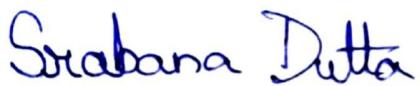 Srabana Dutta